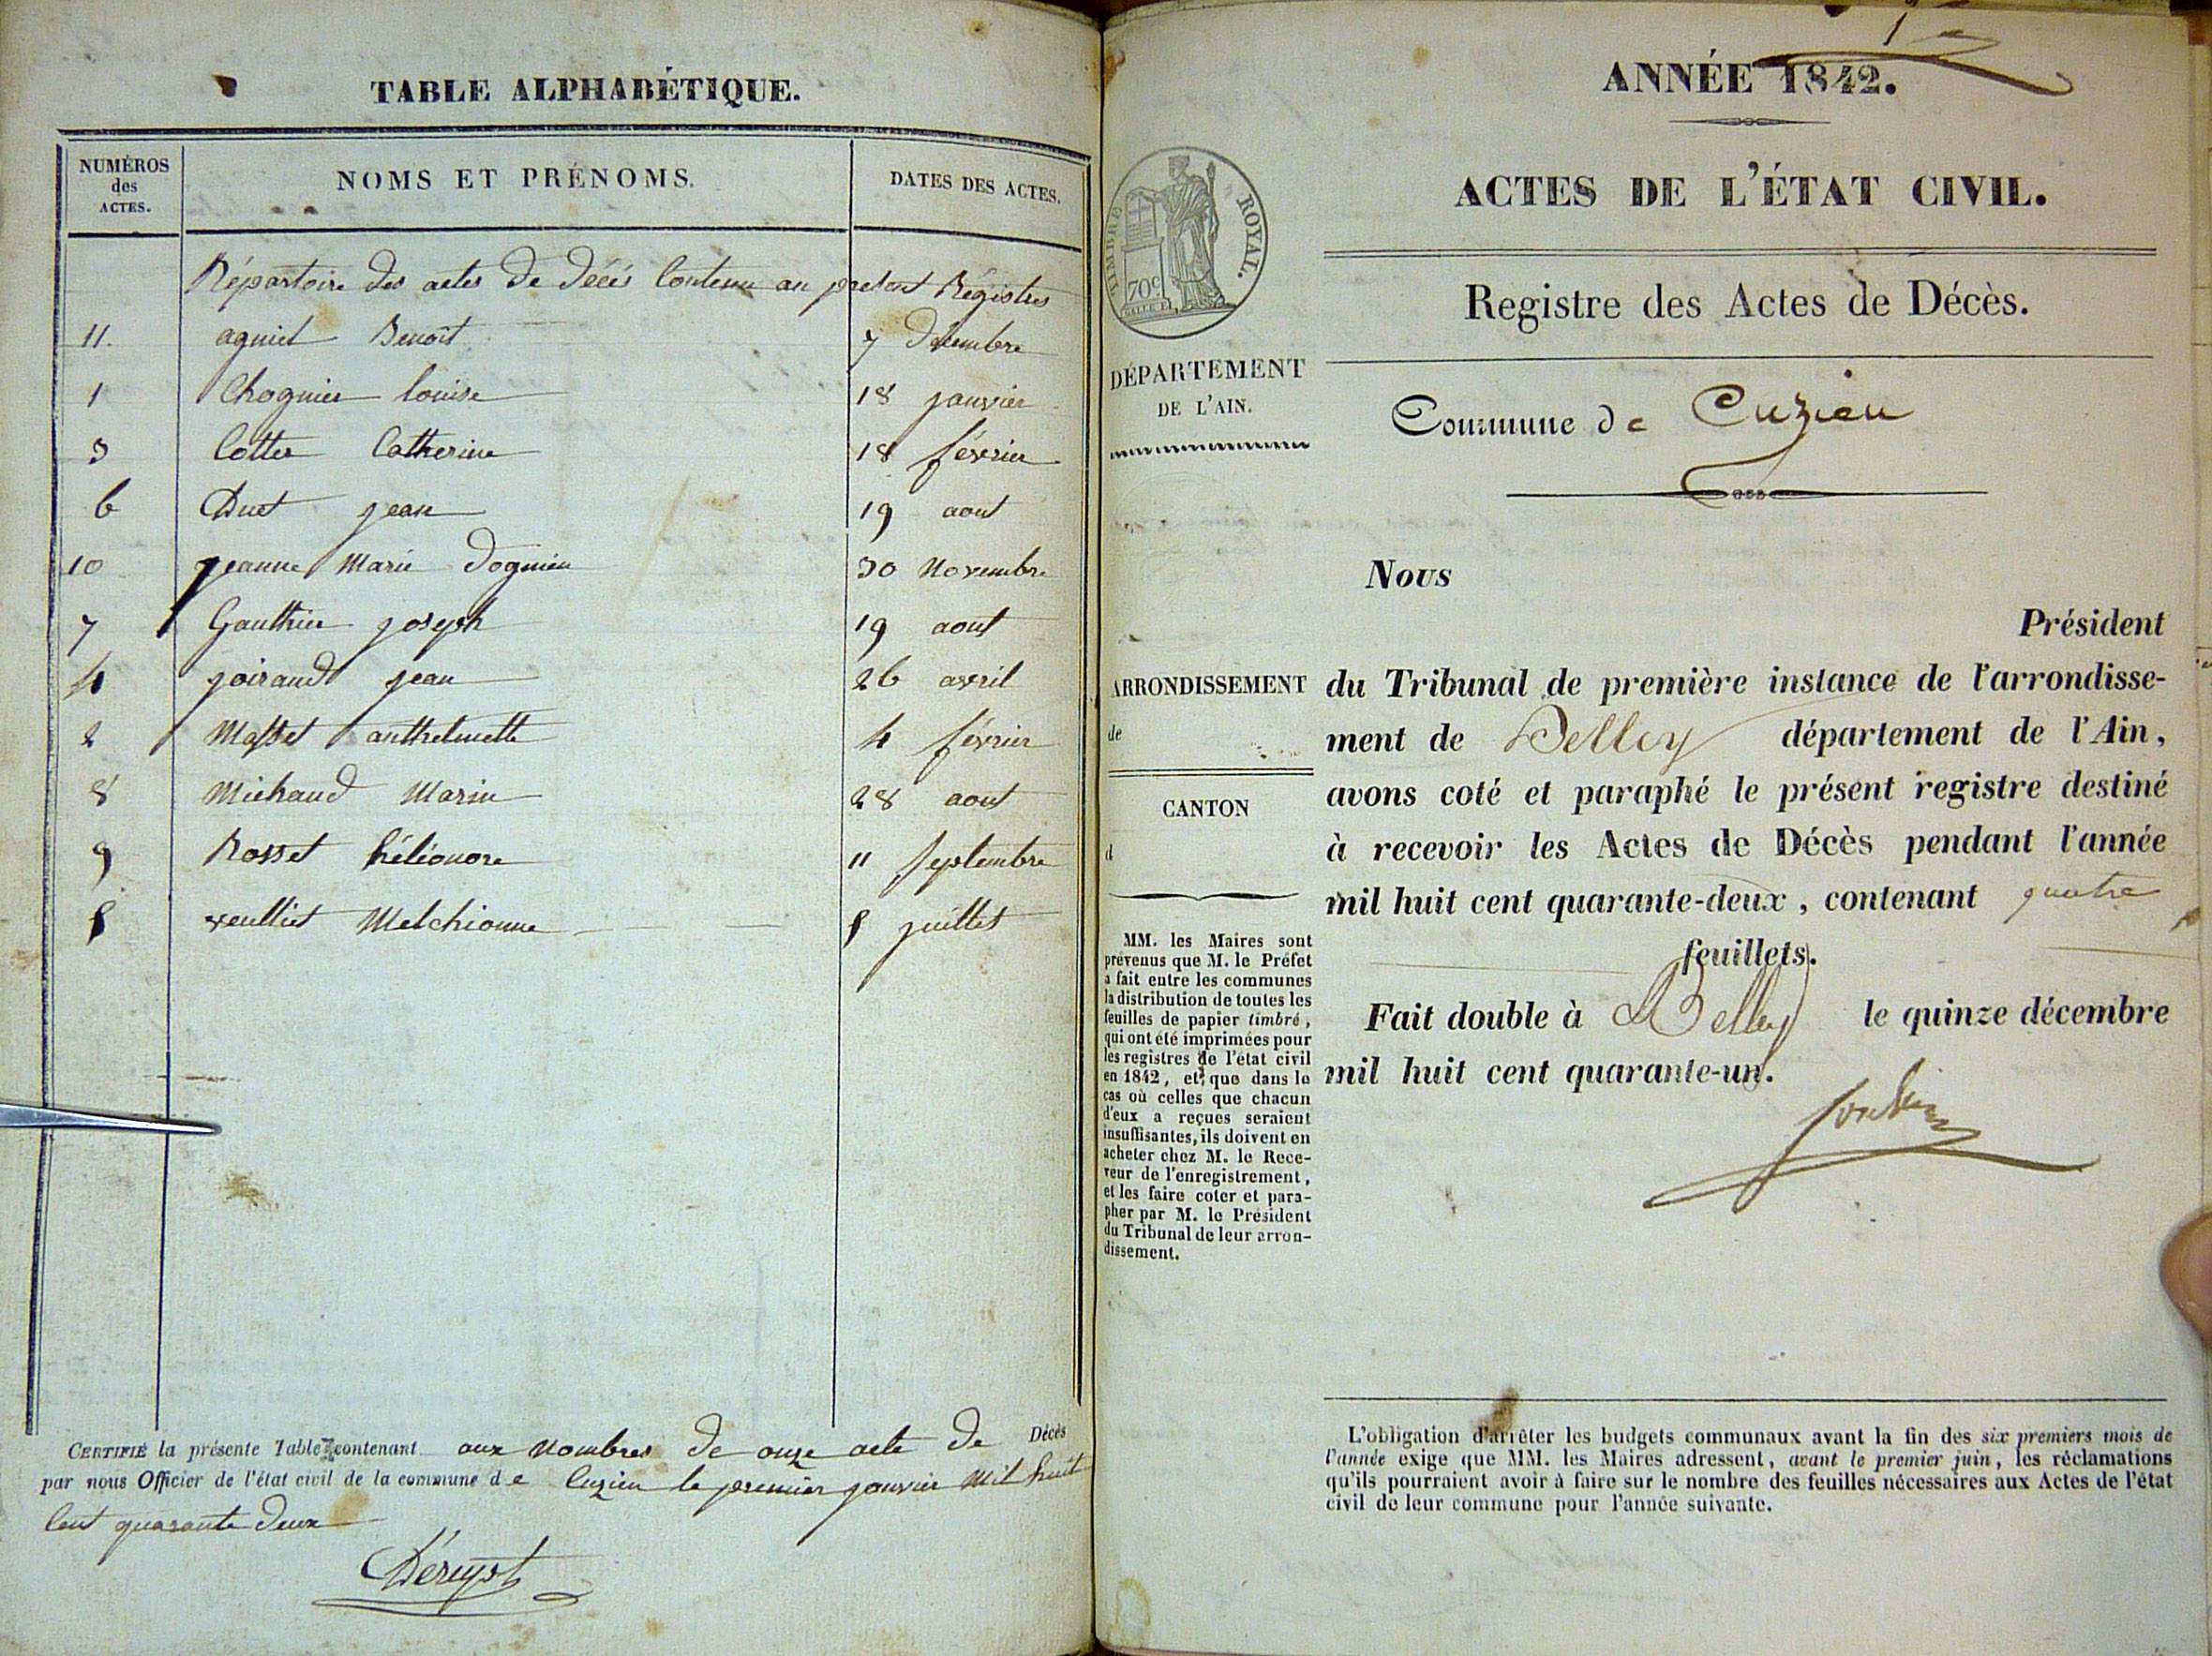 TABLE ALPHABÉTIQUE.
NUMÉROS des ACTES. NOMS ET PRÉNOMS. DATES DES ACTES.
Répartoire des actes de décés Contenu au présent Régistres
11. aguiet Benoît 7 décembre
1 Chognier louise 18 janvier
3 Cottier Catherine 18 février
6 Duet jean 19 aout
10 jeanne Marie dognien 30 Novembre
7 Gauthier joseph 19 aout
4 joiraud jean 26 avril
2 Masset anthelmette 4 février
8 Michaud Marin 28 aout
9 Rosset héléonore 11 septembre
5 veulliet Melchionne 5 juillet
CERTIFIÉ la présente Table contenant aux Nombres de onze acte de Décès
par nous Officier de l'état civil de la commune de Cuzieu le premier janvier Mil huit
Cent quarante deux
ANNÉE 1842.
ACTES DE L'ÉTAT CIVIL.
TIMBRE ROYAL.
70c
Registre des Actes de Décès.
DÉPARTEMENT
DE L'AIN.
Commune de Cuzieu
Nous
Président
ARRONDISSEMENT
de
CANTON
d
du Tribunal de première instance de l'arrondisse-
ment de Belley département de l'Ain,
avons coté et paraphé le présent registre destiné
à recevoir les Actes de Décès pendant l'année
mil huit cent quarante-deux, contenant quatre
feuillets.
Fait double à Belley le quinze décembre
mil huit cent quarante-un.
MM. les Maires sont
prévenus que M. le Préfet
a fait entre les communes
la distribution de toutes les
feuilles de papier timbré,
qui ont été imprimées pour
les registres de l'état civil
en 1842, et que dans le
cas où celles que chacun
d'eux a reçues seraient
insuffisantes, ils doivent en
acheter chez M. le Rece-
veur de l'enregistrement,
et les faire coter et para-
pher par M. le Président
du Tribunal de leur arron-
dissement.
L'obligation d'arrêter les budgets communaux avant la fin des six premiers mois de
l'année exige que MM. les Maires adressent, avant le premier juin, les réclamations
qu'ils pourraient avoir à faire sur le nombre des feuilles nécessaires aux Actes de l'état
civil de leur commune pour l'année suivante.